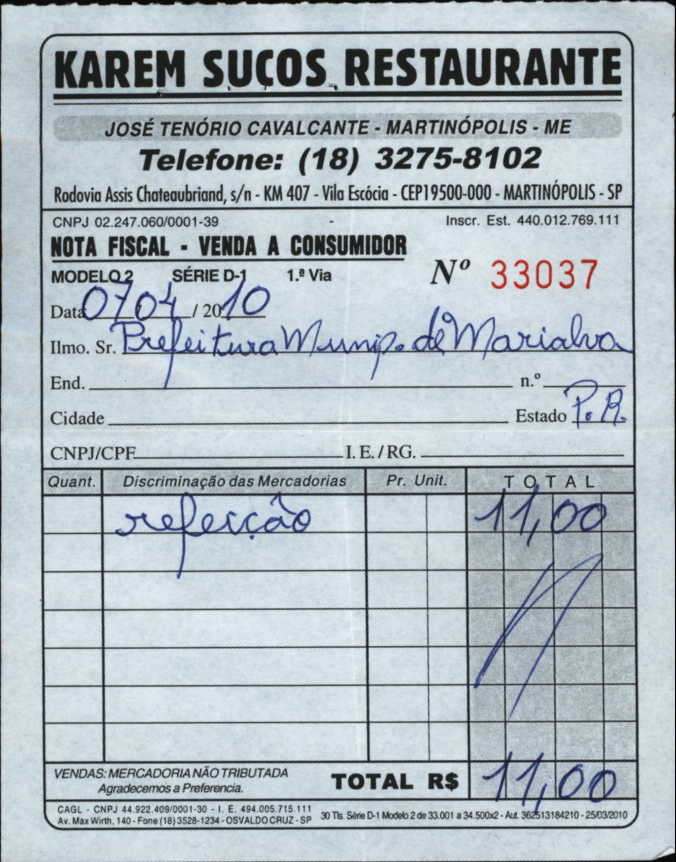 KAREM SUCOS RESTAURANTE
JOSÉ TENÓRIO CAVALCANTE - MARTINÓPOLIS - ME
Telefone: (18) 3275-8102
Rodovia Assis Chateaubriand, s/n - KM 407 - Vila Escócia - CEP19500-000 - MARTINÓPOLIS - SP
CNPJ 02.247.060/0001-39 - Inscr. Est. 440.012.769.111
NOTA FISCAL - VENDA A CONSUMIDOR
MODELO 2 SÉRIE D-1 1.ª Via Nº 33037
Data 07 04 / 2010
Ilmo. Sr. Prefeitura Munip. de Marialva
End. n.º
Cidade Estado P.R.
CNPJ/CPF I. E. / RG.
Quant. Discriminação das Mercadorias Pr. Unit. TOTAL
refeição 11,00
VENDAS: MERCADORIA NÃO TRIBUTADA
Agradecemos a Preferencia.
TOTAL R$ 11,00
CAGL - CNPJ 44.922.409/0001-30 - I. E. 494.005.715.111
Av. Max Wirth, 140 - Fone (18) 3528-1234 - OSVALDO CRUZ - SP
30 Tls. Série D-1 Modelo 2 de 33.001 a 34.500x2 - Aut. 362513184210 - 25/03/2010